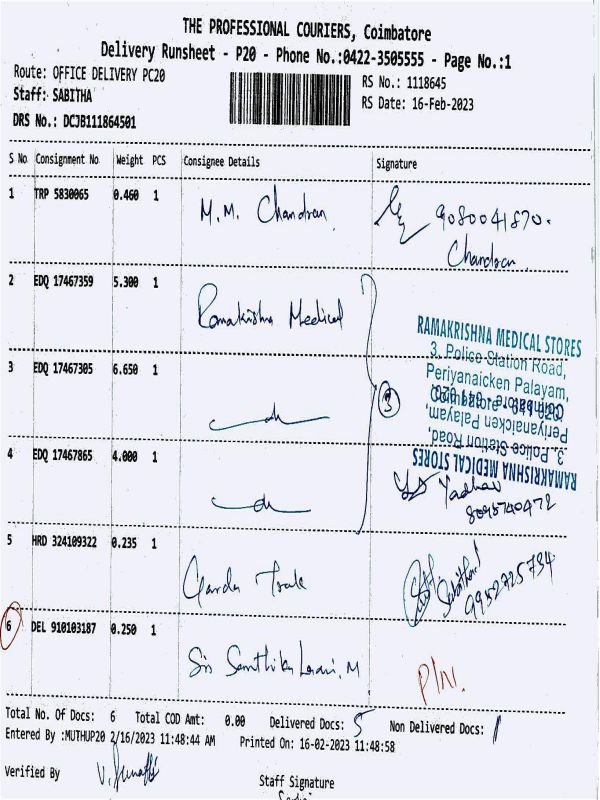 THE PROFESSIONAL COURIERS, Coimbatore
Delivery Runsheet - P20 - Phone No.:0422-3505555 - Page No.:1
Route: OFFICE DELIVERY PC20
RS No.: 1118645
Staff: SABITHA
RS Date: 16-Feb-2023
DRS No.: DCJB111864501
S No Consignment No Weight PCS Consignee Details Signature
1 TRP 5830065 0.460 1 M.M. Chandran 9080041870.
Chandran
2 EDQ 17467359 5.300 1 Ramakrishna Medical
RAMAKRISHNA MEDICAL STORES
3, Police Station Road,
Periyanaicken Palayam,
Coimbatore - 641 020.
3 EDQ 17467305 6.650 1 do 3
Coimbatore - 641 020.
Periyanaicken Palayam,
3, Police Station Road,
RAMAKRISHNA MEDICAL STORES
4 EDQ 17467865 4.000 1 do Yadhav
8098740472
5 HRD 324109322 0.235 1
9952725734
6 DEL 910103187 0.250 1 Sri M P/N.
Total No. Of Docs: 6 Total COD Amt: 0.00 Delivered Docs: 5 Non Delivered Docs: 1
Entered By :MUTHUP20 2/16/2023 11:48:44 AM Printed On: 16-02-2023 11:48:58
Verified By
Staff Signature